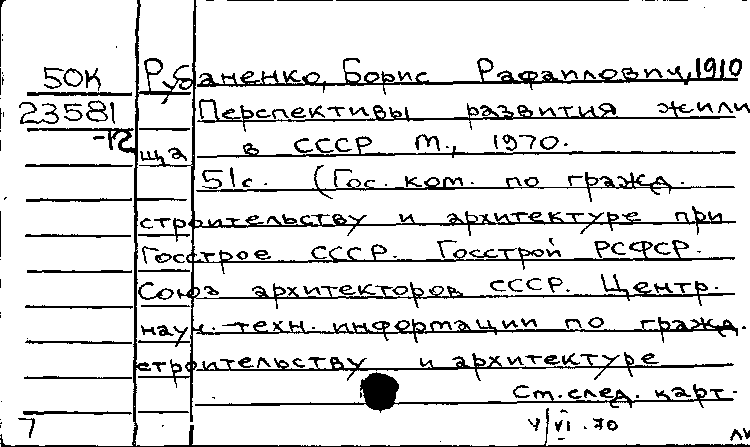 50К Рубаненко, Борис Рафаилович, 1910
23581 Перспективы развития жили
-12 ща в СССР М., 1970.
51с. (Гос. ком. по гражд.
строительству и архитектуре при
Госстрое СССР. Госстрой РСФСР.
Союз архитекторов СССР. Центр.
науч.-техн. информации по гражд.
строительству и архитектуре
См. след. карт.
7 VI .70